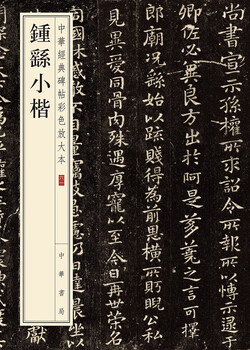 尚書宣示孫權所求詔令所報所
卿佐必冀良方出於阿是芻蕘之言可擇
郎廟況繇始以疏賤得為前恩橫所盱睨公私
見異愛同骨肉殊遇厚寵以至今日再世榮名
同國休慼敢不自量竊致愚慮仍日達晨坐以
中華經典碑帖彩色放大本
中華書局
鍾繇小楷
獻